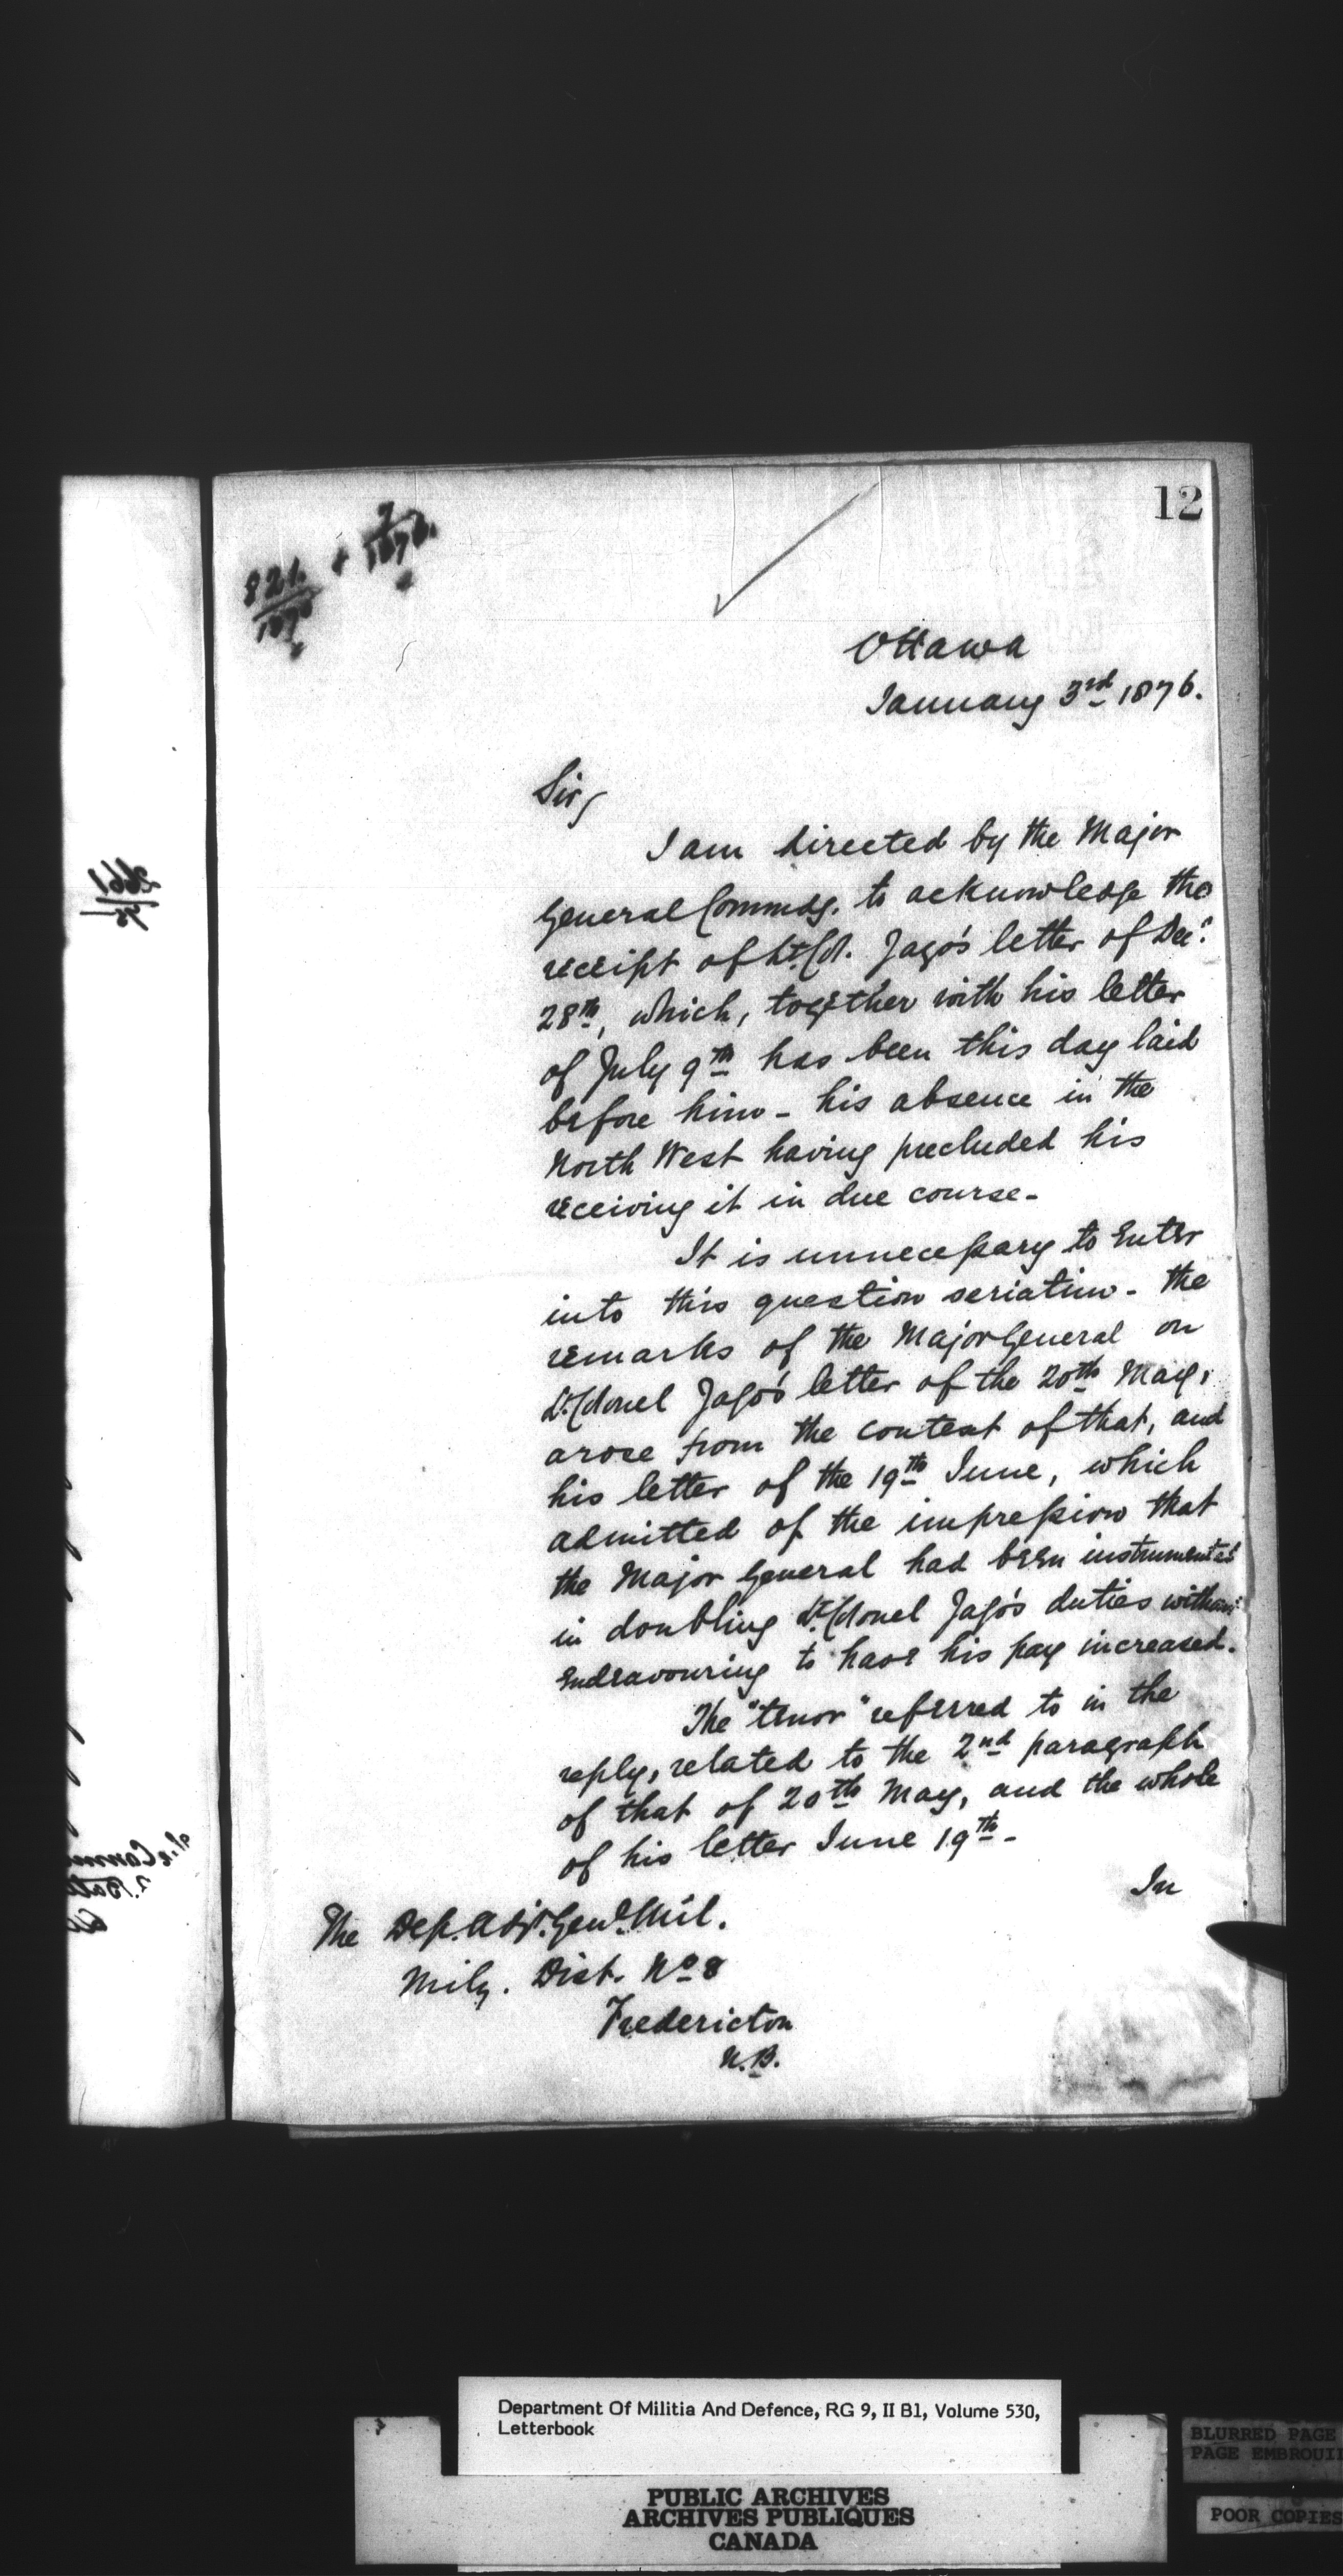 12
821 + 7
1876.
Ottawa
January 3rd 1876.
Sir,
I am directed by the Major
General Commdg. to acknowledge the
receipt of Lt. Col. Jago's letter of Decr.
28th, which, together with his letter
of July 9th has been this day laid
before him - his absence in the
North West having precluded his
receiving it in due course -
It is unnecessary to enter
into this question seriatim - the
remarks of the Major General on
Lt. Colonel Jago's letter of the 20th May,
arose from the context of that, and
his letter of the 19th June, which
admitted of the impression that
the Major General had been instrumental
in doubling Lt. Colonel Jago's duties without
endeavouring to have his pay increased.
The "tenor" referred to in the
reply, related to the 2nd paragraph
of that of 20th May, and the whole
of his letter June 19th -
In
The Dep. Adjt. Genl. Mil.
Mily. Dist. No 8
Fredericton
N.B.
2661
75
Department Of Militia And Defence, RG 9, II B1, Volume 530,
Letterbook
PUBLIC ARCHIVES
ARCHIVES PUBLIQUES
CANADA
BLURRED PAGE
PAGE EMBROUI
POOR COPIES